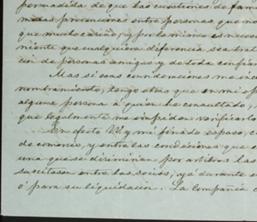 persuadida de que las cuestiones de fam
midas privaciones entre personas que no
que mucho cariño, y por lo mismo es neces
niente que cualquiera diferencia se trat
cio de personas amigas y de toda confian
Mas si esas consideraciones me inc
nombramiento, tengo otras que en mi op
alguna persona a quien he consultado,
que legalmente me impiden verificarlo
En efecto Vd. y mi finado esposo, c
de comercio, y entre las condiciones que c
una que se dirimirian por arbitros las
suscitasen entre los socios, ya durante e
ó para su liquidacion. La compañia c